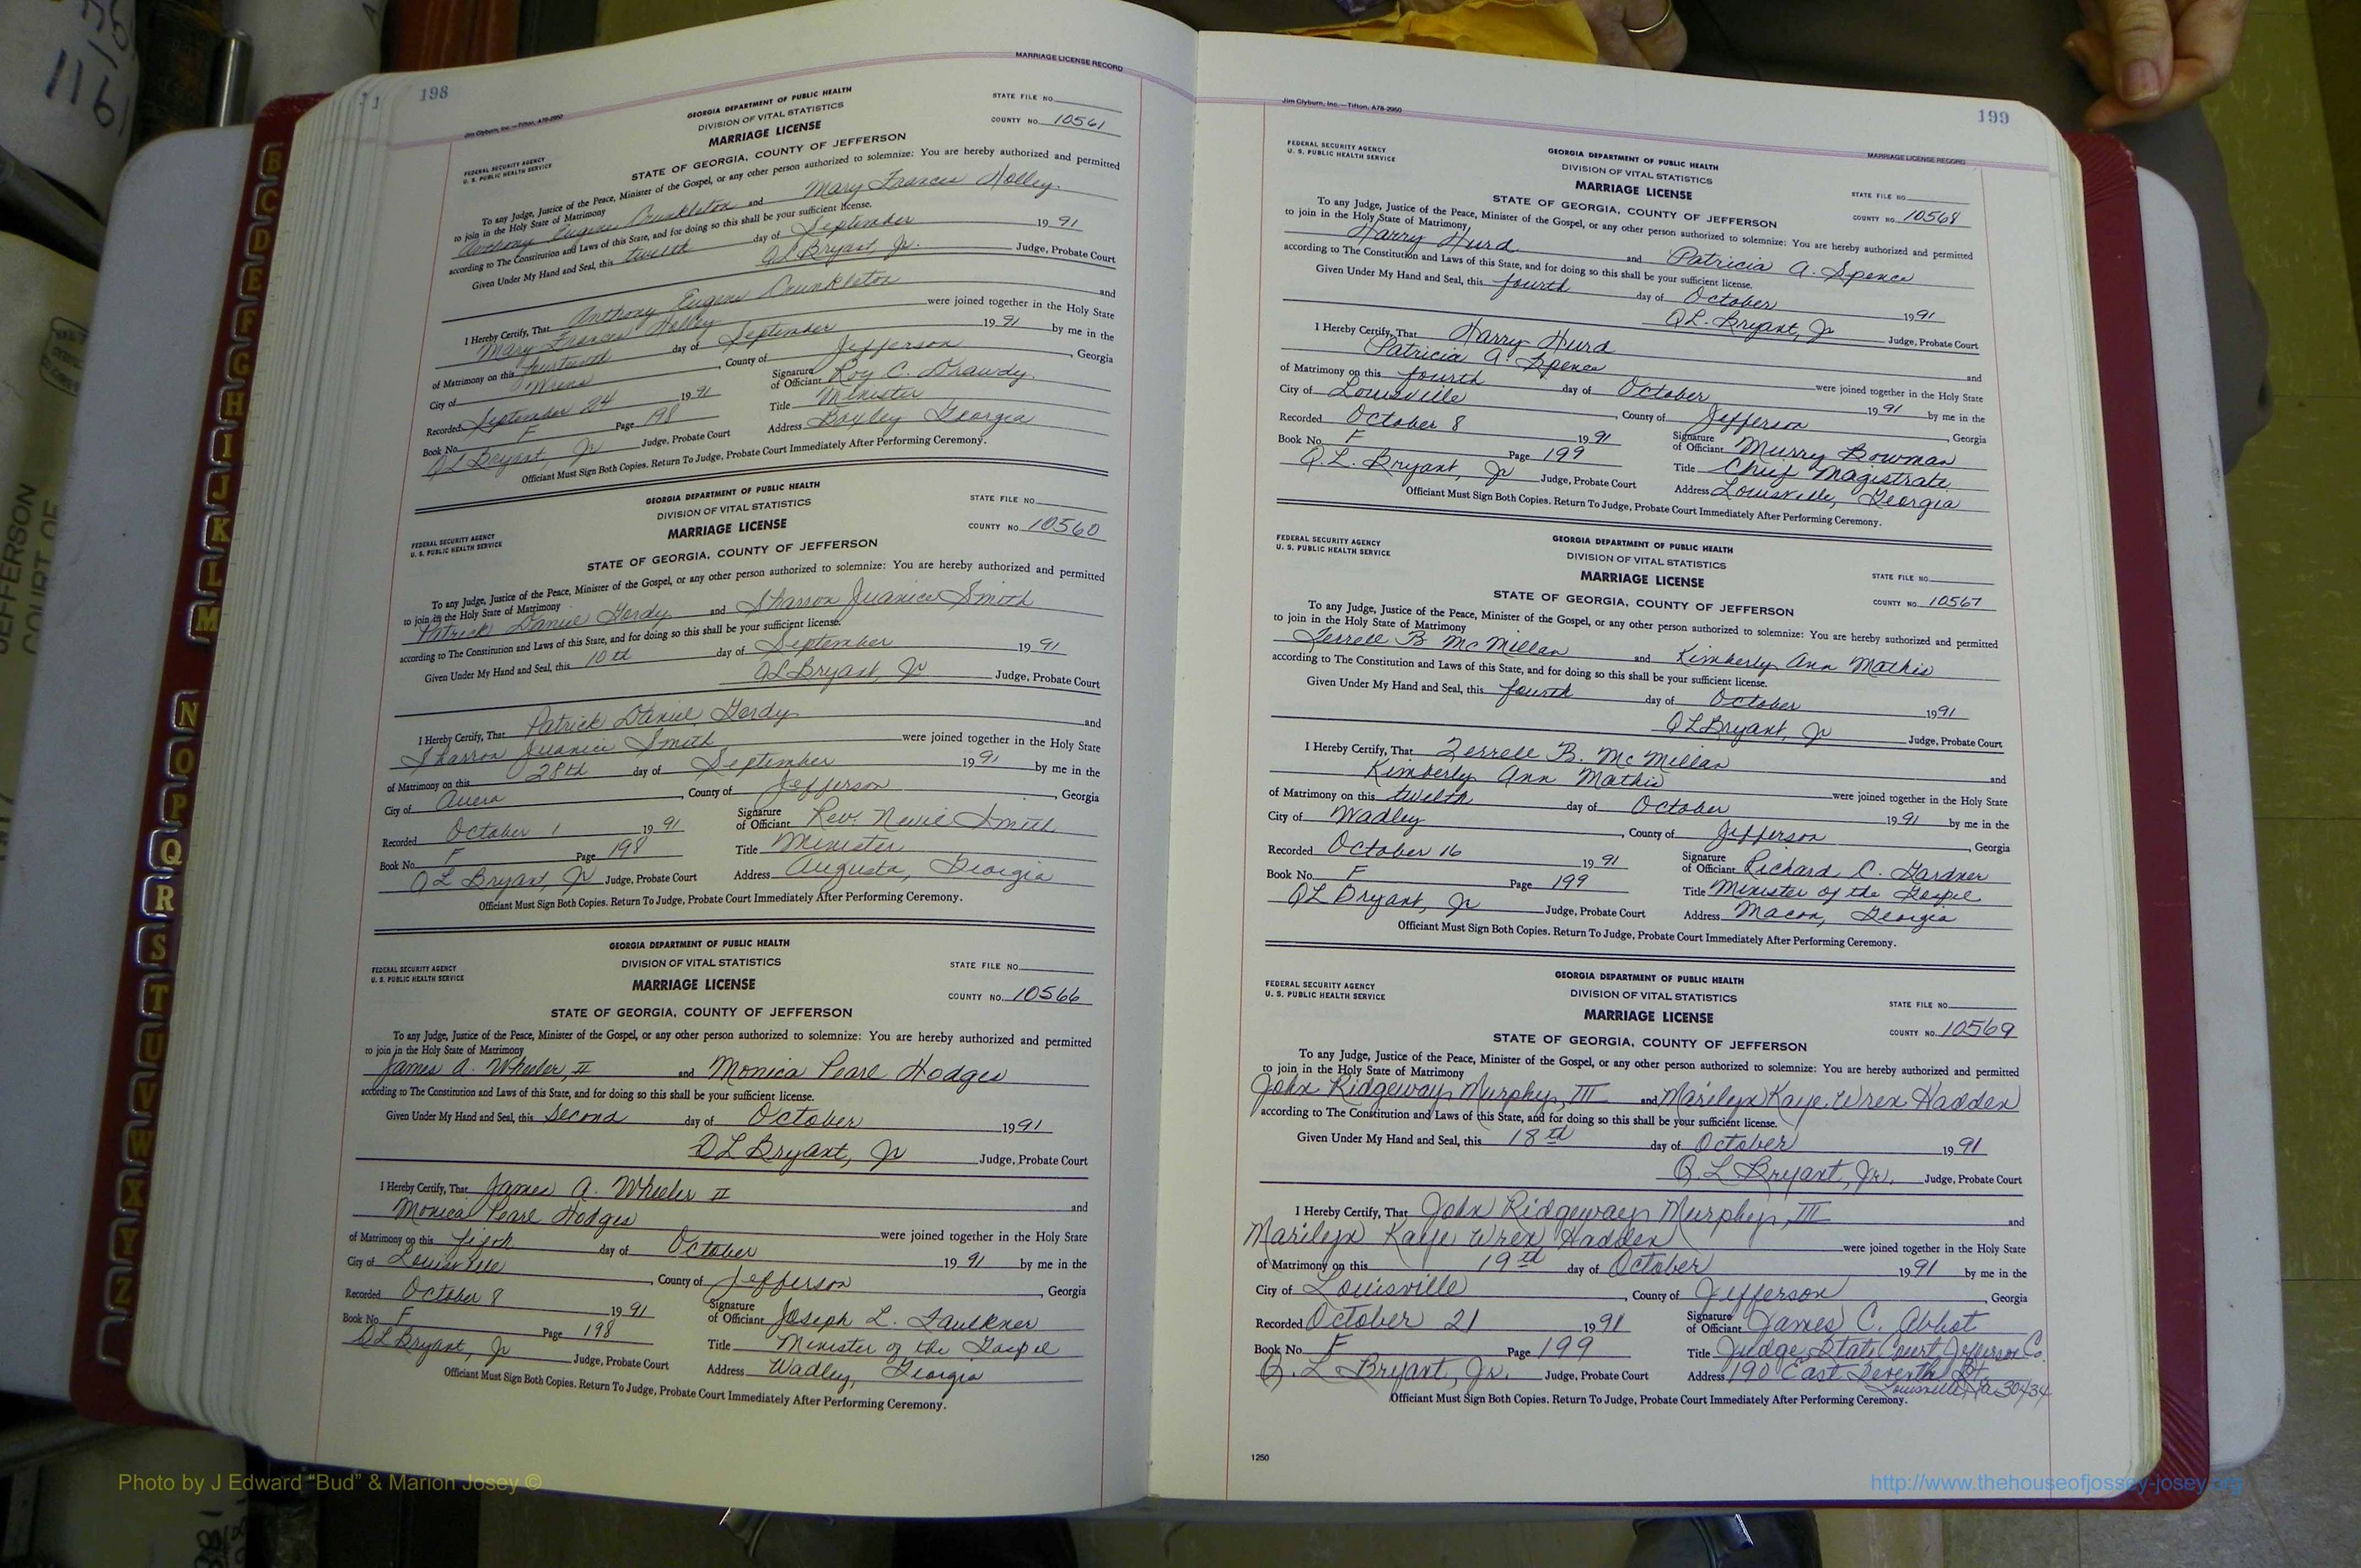 198
MARRIAGE LICENSE RECORD
Jim Clyburn, Inc.—Tifton, A78-2950
GEORGIA DEPARTMENT OF PUBLIC HEALTH
DIVISION OF VITAL STATISTICS
MARRIAGE LICENSE
STATE FILE NO.
COUNTY NO. 10561
FEDERAL SECURITY AGENCY
U. S. PUBLIC HEALTH SERVICE
STATE OF GEORGIA, COUNTY OF JEFFERSON
To any Judge, Justice of the Peace, Minister of the Gospel, or any other person authorized to solemnize: You are hereby authorized and permitted
to join in the Holy State of Matrimony
Anthony Eugene Crunkleton and Mary Frances Holley
according to The Constitution and Laws of this State, and for doing so this shall be your sufficient license.
Given Under My Hand and Seal, this twelth day of September 19 91
QL Bryant, Jr. Judge, Probate Court
I Hereby Certify, That Anthony Eugene Crunkleton and
Mary Frances Holley were joined together in the Holy State
of Matrimony on this fourteenth day of September 19 91 by me in the
City of Wrens, County of Jefferson, Georgia
Recorded September 24 19 91 Signature of Officiant Roy C. Drawdy
Book No. F Page 198 Title Minister
QL Bryant, Jr Judge, Probate Court Address Baxley Georgia
Officiant Must Sign Both Copies. Return To Judge, Probate Court Immediately After Performing Ceremony.
GEORGIA DEPARTMENT OF PUBLIC HEALTH
DIVISION OF VITAL STATISTICS
MARRIAGE LICENSE
STATE FILE NO.
COUNTY NO. 10560
FEDERAL SECURITY AGENCY
U. S. PUBLIC HEALTH SERVICE
STATE OF GEORGIA, COUNTY OF JEFFERSON
To any Judge, Justice of the Peace, Minister of the Gospel, or any other person authorized to solemnize: You are hereby authorized and permitted
to join in the Holy State of Matrimony
Patrick Daniel Gordy and Sharron Juanice Smith
according to The Constitution and Laws of this State, and for doing so this shall be your sufficient license.
Given Under My Hand and Seal, this 10th day of September 19 91
QL Bryant, Jr Judge, Probate Court
I Hereby Certify, That Patrick Daniel Gordy and
Sharron Juanice Smith were joined together in the Holy State
of Matrimony on this 28th day of September 19 91 by me in the
City of Avera, County of Jefferson, Georgia
Recorded October 1 19 91 Signature of Officiant Rev. Nevie Smith
Book No. F Page 198 Title Minister
QL Bryant, Jr Judge, Probate Court Address Augusta, Georgia
Officiant Must Sign Both Copies. Return To Judge, Probate Court Immediately After Performing Ceremony.
GEORGIA DEPARTMENT OF PUBLIC HEALTH
DIVISION OF VITAL STATISTICS
MARRIAGE LICENSE
STATE FILE NO.
COUNTY NO. 10566
FEDERAL SECURITY AGENCY
U. S. PUBLIC HEALTH SERVICE
STATE OF GEORGIA, COUNTY OF JEFFERSON
To any Judge, Justice of the Peace, Minister of the Gospel, or any other person authorized to solemnize: You are hereby authorized and permitted
to join in the Holy State of Matrimony
James A. Wheeler, II and Monica Pearl Hodges
according to The Constitution and Laws of this State, and for doing so this shall be your sufficient license.
Given Under My Hand and Seal, this Second day of October 19 91
QL Bryant, Jr Judge, Probate Court
I Hereby Certify, That James A. Wheeler II and
Monica Pearl Hodges were joined together in the Holy State
of Matrimony on this fifth day of October 19 91 by me in the
City of Louisville, County of Jefferson, Georgia
Recorded October 8 19 91 Signature of Officiant Joseph L. Faulkner
Book No. F Page 198 Title Minister of the Gospel
QL Bryant, Jr Judge, Probate Court Address Wadley, Georgia
Officiant Must Sign Both Copies. Return To Judge, Probate Court Immediately After Performing Ceremony.
Jim Clyburn, Inc.—Tifton, A78-2950
199
MARRIAGE LICENSE RECORD
FEDERAL SECURITY AGENCY
U. S. PUBLIC HEALTH SERVICE
GEORGIA DEPARTMENT OF PUBLIC HEALTH
DIVISION OF VITAL STATISTICS
MARRIAGE LICENSE
STATE FILE NO.
COUNTY NO. 10568
STATE OF GEORGIA, COUNTY OF JEFFERSON
To any Judge, Justice of the Peace, Minister of the Gospel, or any other person authorized to solemnize: You are hereby authorized and permitted
to join in the Holy State of Matrimony
Harry Hurd and Patricia A. Spence
according to The Constitution and Laws of this State, and for doing so this shall be your sufficient license.
Given Under My Hand and Seal, this fourth day of October 19 91
QL. Bryant, Jr Judge, Probate Court
I Hereby Certify, That Harry Hurd and
Patricia A. Spence were joined together in the Holy State
of Matrimony on this fourth day of October 19 91 by me in the
City of Louisville, County of Jefferson, Georgia
Recorded October 8 19 91 Signature of Officiant Murry Bowman
Book No. F Page 199 Title Chief Magistrate
Q.L. Bryant, Jr Judge, Probate Court Address Louisville, Georgia
Officiant Must Sign Both Copies. Return To Judge, Probate Court Immediately After Performing Ceremony.
FEDERAL SECURITY AGENCY
U. S. PUBLIC HEALTH SERVICE
GEORGIA DEPARTMENT OF PUBLIC HEALTH
DIVISION OF VITAL STATISTICS
MARRIAGE LICENSE
STATE FILE NO.
COUNTY NO. 10567
STATE OF GEORGIA, COUNTY OF JEFFERSON
To any Judge, Justice of the Peace, Minister of the Gospel, or any other person authorized to solemnize: You are hereby authorized and permitted
to join in the Holy State of Matrimony
Terrell B McMillan and Kimberly Ann Mathis
according to The Constitution and Laws of this State, and for doing so this shall be your sufficient license.
Given Under My Hand and Seal, this fourth day of October 19 91
QL Bryant, Jr Judge, Probate Court
I Hereby Certify, That Terrell B. McMillan and
Kimberly Ann Mathis were joined together in the Holy State
of Matrimony on this twelth day of October 19 91 by me in the
City of Wadley, County of Jefferson, Georgia
Recorded October 16 19 91 Signature of Officiant Richard C. Gardner
Book No. F Page 199 Title Minister of the Gospel
QL Bryant, Jr Judge, Probate Court Address Macon, Georgia
Officiant Must Sign Both Copies. Return To Judge, Probate Court Immediately After Performing Ceremony.
FEDERAL SECURITY AGENCY
U. S. PUBLIC HEALTH SERVICE
GEORGIA DEPARTMENT OF PUBLIC HEALTH
DIVISION OF VITAL STATISTICS
MARRIAGE LICENSE
STATE FILE NO.
COUNTY NO. 10569
STATE OF GEORGIA, COUNTY OF JEFFERSON
To any Judge, Justice of the Peace, Minister of the Gospel, or any other person authorized to solemnize: You are hereby authorized and permitted
to join in the Holy State of Matrimony
John Ridgeway Murphy, III and Marilyn Kaye Wren Hadden
according to The Constitution and Laws of this State, and for doing so this shall be your sufficient license.
Given Under My Hand and Seal, this 18th day of October 19 91
Q. L Bryant, Jr. Judge, Probate Court
I Hereby Certify, That John Ridgeway Murphy, III and
Marilyn Kaye Wren Hadden were joined together in the Holy State
of Matrimony on this 19th day of October 19 91 by me in the
City of Louisville, County of Jefferson, Georgia
Recorded October 21 19 91 Signature of Officiant James C. Abbot
Book No. F Page 199 Title Judge, State Court, Jefferson Co.
Q. L Bryant, Jr. Judge, Probate Court Address 190 East Seventh St.
Louisville, Ga 30434
Officiant Must Sign Both Copies. Return To Judge, Probate Court Immediately After Performing Ceremony.
1250
B
C
D
E
F
G
H
I
J
K
L
M
N
O
P
Q
R
S
T
U
V
W
X
Y
Z
JEFFERSON
COURT OF
Photo by J Edward “Bud” & Marion Josey ©
http://www.thehouseofjossey-josey.org